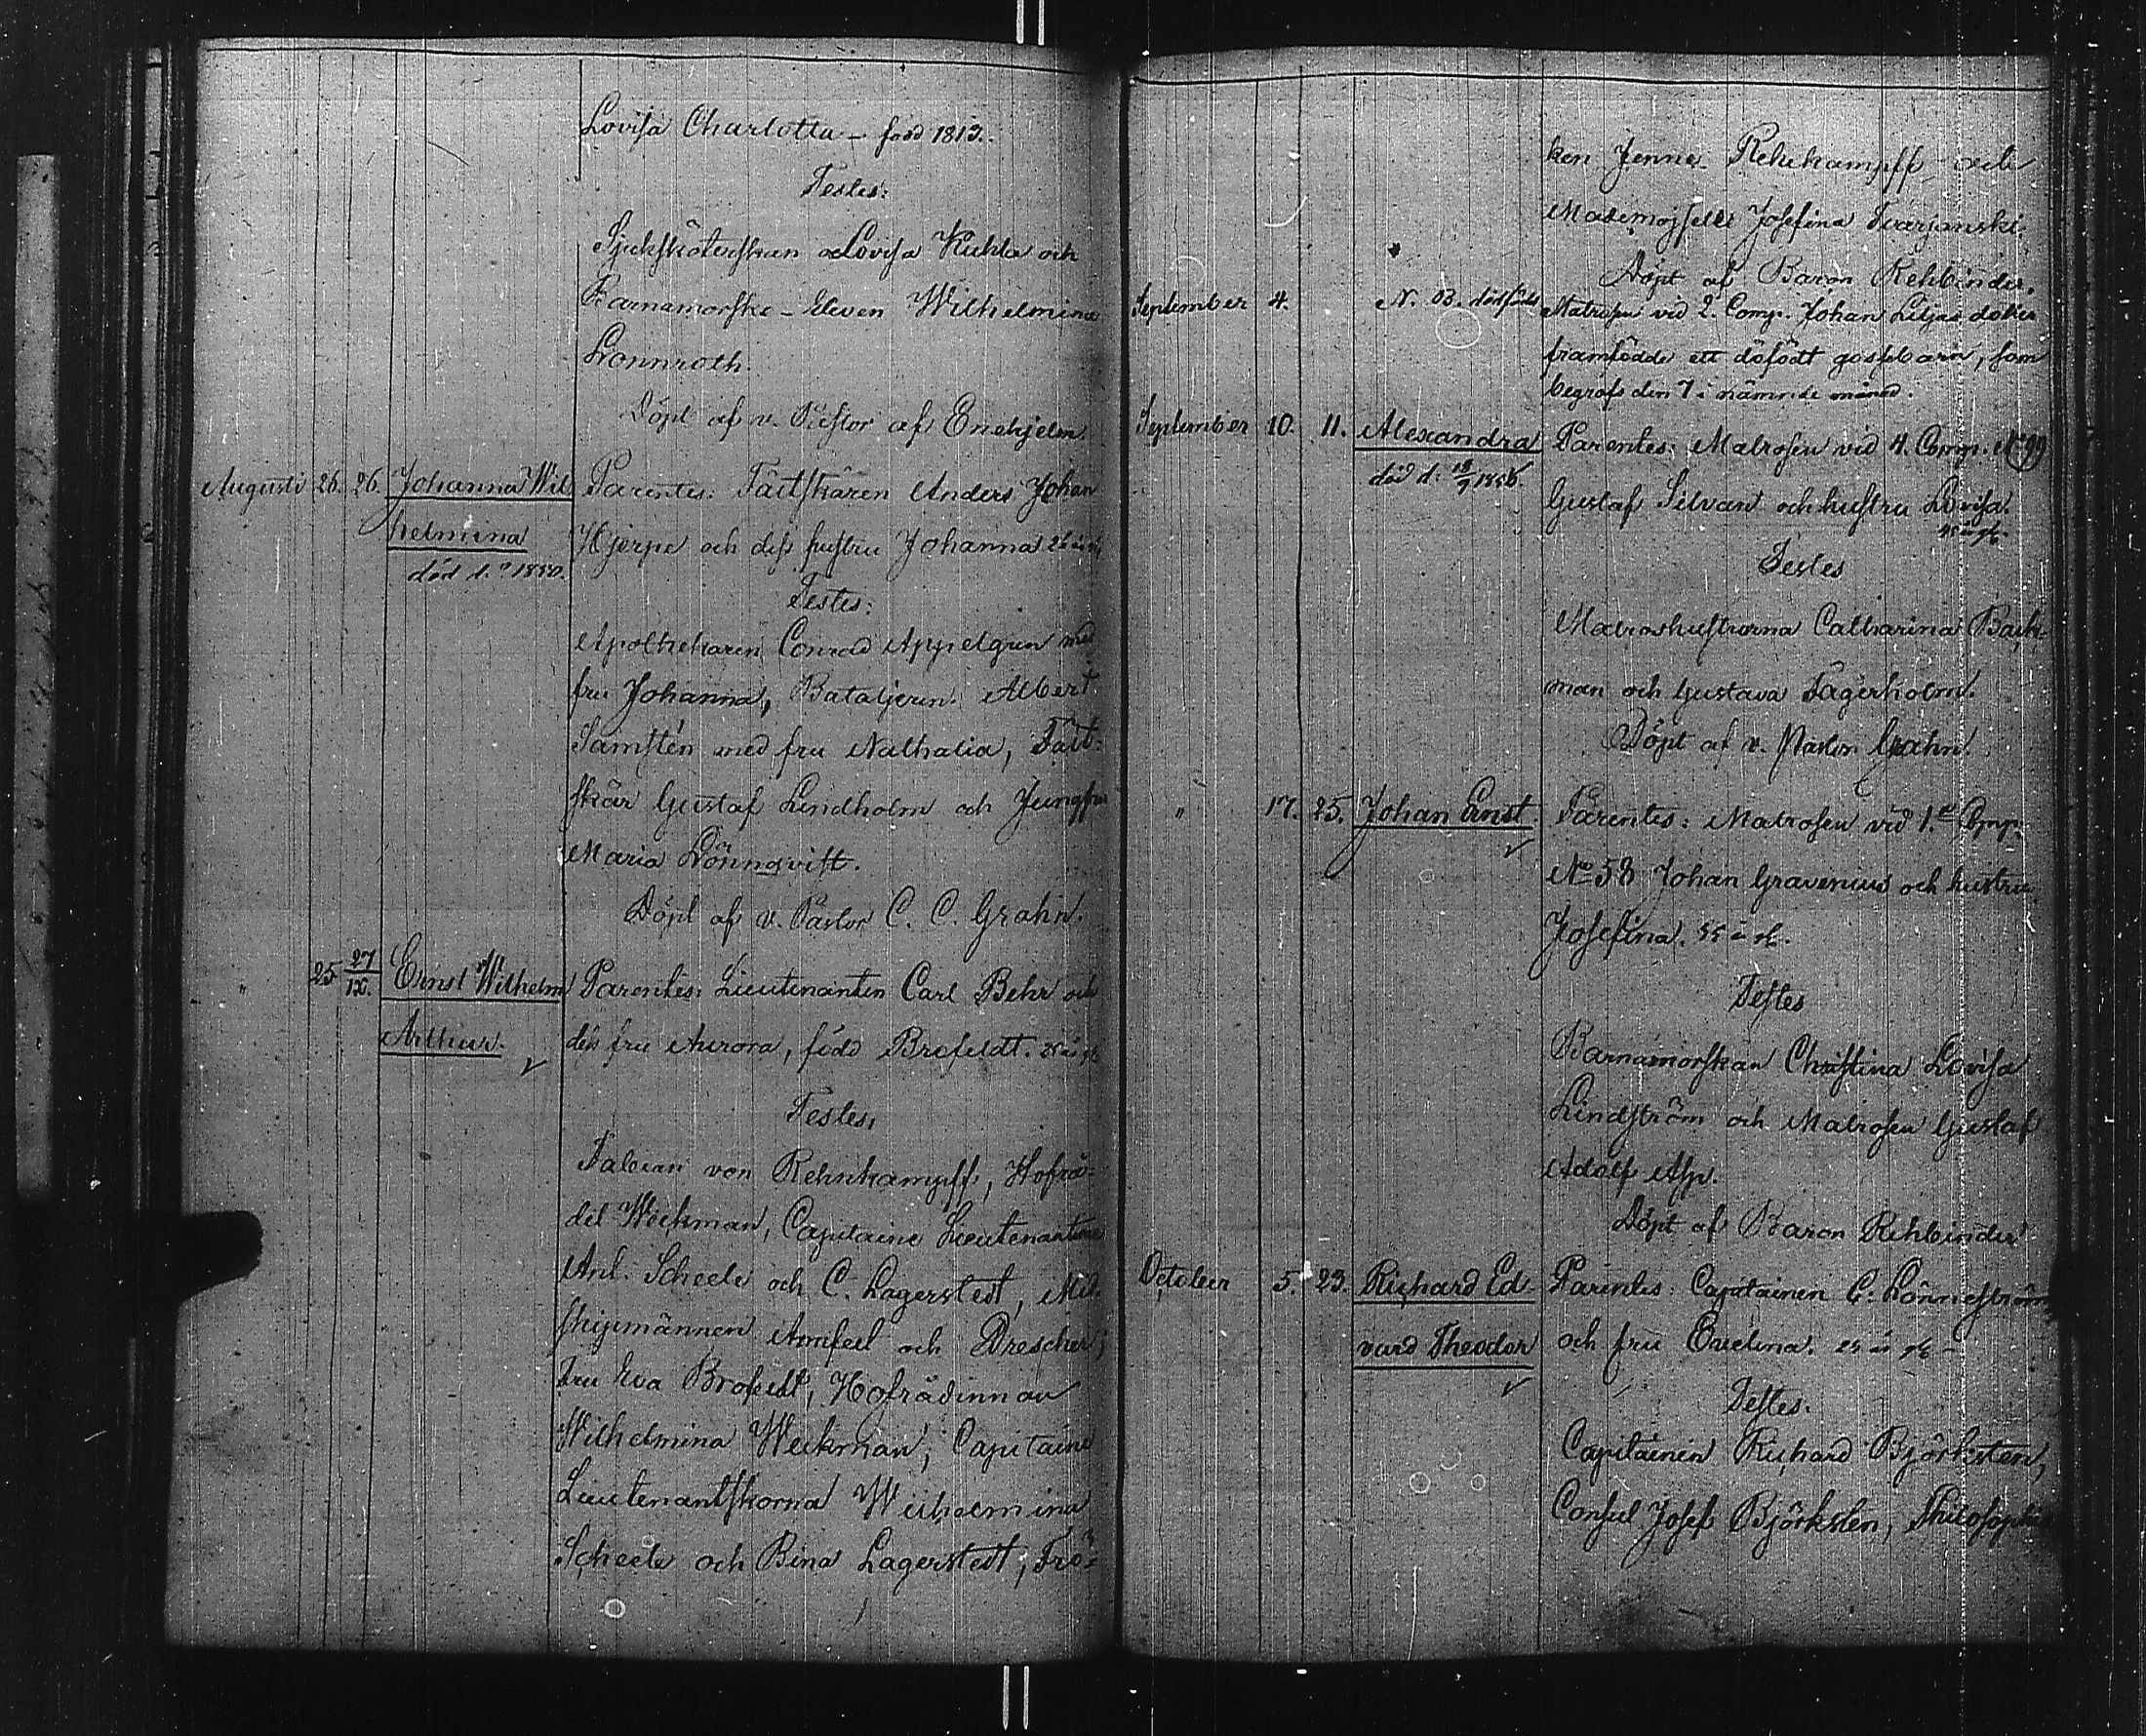 Lovisa Charlotta - född 1813.
Testes:
Sjuksköterskan Lovisa Kuhla och
Barnamorske-Eleven Wilhelmina
Lönnroth.
Döpt af v. Pastor af Enehjelm.
Augusti 26. 26. Johanna Wil
helmina
död d. 1850.
Parentes: Fältskären Anders Johan
Hjerpe och dess hustru Johanna
Testes:
Apothekaren Conrad Appelgren med
fru Johanna, Bataljeren Albert
Samstén med fru Nathalia, Fält-
skär Gustaf Lindholm och Jungfru
Maria Lönnqvist.
Döpt af v. Pastor C. C. Grahn.
" 25 27/IX. Ernst Wilhelm
Arthur.
Parentes: Lieutenanten Carl Behr och
dess fru Aurora, född Brofeldt.
Testes,
Fabian von Rehnkampff, Hofrå-
det Weckman, Capitaine Lieutenanterne
Ant. Scheele och C. Lagerstedt, Mid-
shipmännen Amfelt och Drescher;
fru Eva Brofeldt, Hofrådinnan
Wilhelmina Weckman, Capitaine
Lieutenantskorna Wilhelmina
Scheele och Bina Lagerstedt, Frö-
ken Jenne Rehnkampff och
Mademojselle Josefina Tvarjanski.
Döpt af Baron Rehbinder.
September 4. N. B. dödfödd
Matrosen vid 2. Comp. Johan Liljas
framfödde ett döfödt gossebarn, som
begrofs den 7 i nämnde månad.
September 10. 11. Alexandra
död d.
Parentes: Matrosen vid 4. Comp. No 99
Gustaf Silvan och hustru Lovisa.
Testes
Matroshustrurna Catharina Back-
man och Gustava Fagerholm.
Döpt af v. Pastor Grahn.
" 17. 25. Johan Ernst.
Parentes: Matrosen vid 1.a Comp.
No 58 Johan Gravenius och hustru
Josefina.
Testes
Barnamorskan Christina Lovisa
Lindström och Matrosen Gustaf
Adolf Asp.
Döpt af Baron Rehbinder
October 5. 23. Richard Ed-
vard Theodor
Parentes: Capitainen C. Lönneström
och fru Evelina.
Testes.
Capitainen Richard Björksten,
Consul Josef Björksten, Philosophie